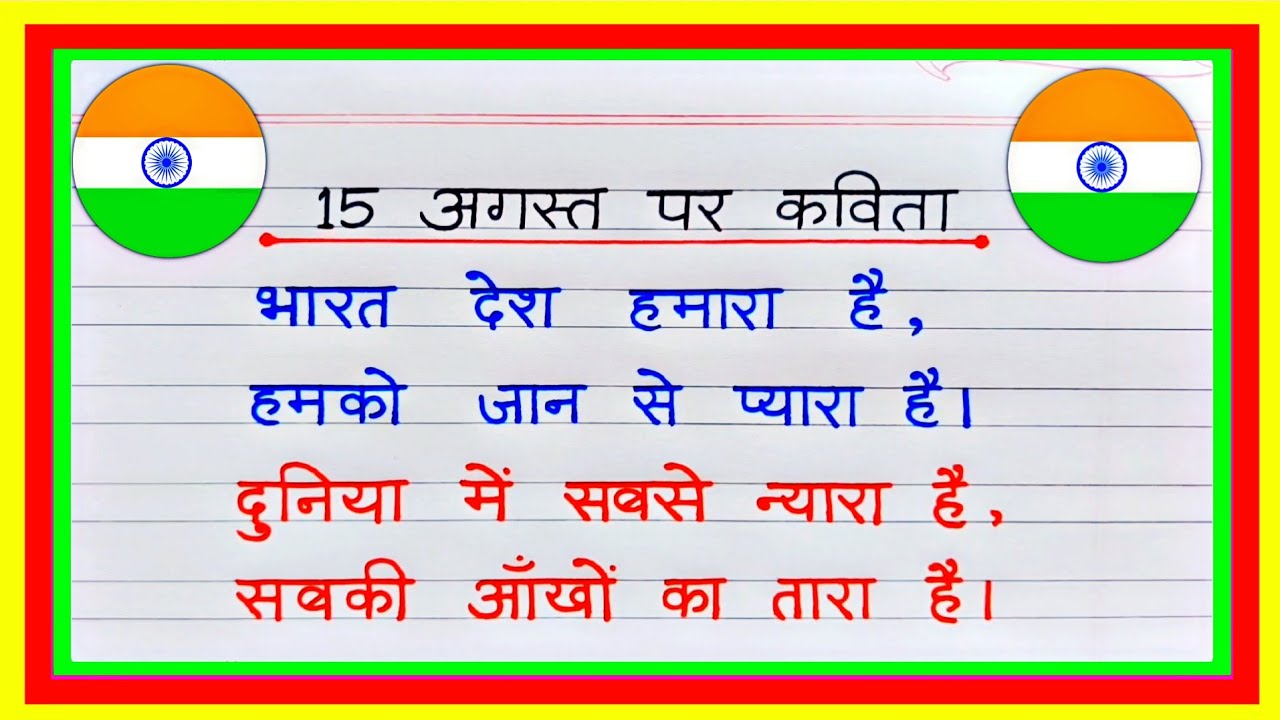 15 अगस्त पर कविता
भारत देश हमारा है,
हमको जान से प्यारा है।
दुनिया में सबसे न्यारा है,
सबकी आँखों का तारा है।